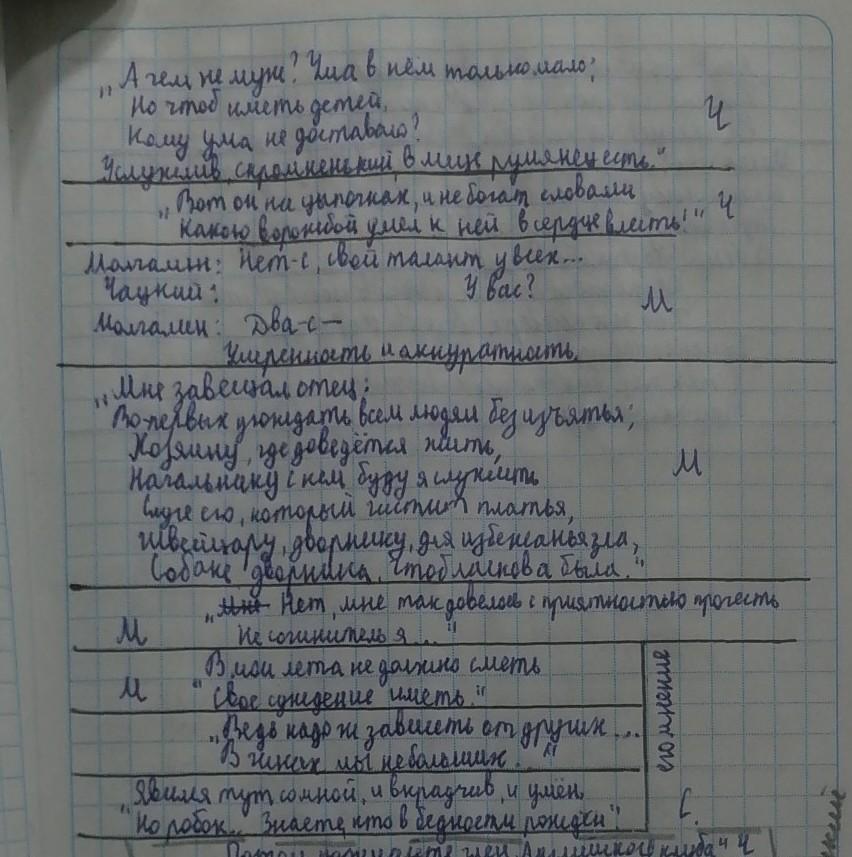 „А чем не муж? Ума в нём только мало;
Но чтоб иметь детей,
Кому ума не доставало?
Ч
Услужлив, скромненький, в лице румянец есть."
„Вот он на цыпочках, и не богат словами
Какою ворожбой умел к ней в сердце влезть!" Ч
Молчалин: Нет-с, свой талант у всех...
Чацкий: У вас?
М
Молчалин: Два-с —
Умеренность и аккуратность.
„Мне завещал отец:
Во-первых угождать всем людям без изъятья;
Хозяину, где доведётся жить,
Начальнику с кем буду я служить
М
Слуге его, который чистит платья,
Швейцару, дворнику, для избежанья зла,
Собаке дворника, чтоб ласкова была."
„Мне Нет, мне так довелось с приятностью прочесть
М Не сочинитель я..."
В мои лета не должно сметь
М „Свое суждение иметь."
„Ведь надо ж зависеть от других...
В чинах мы небольших..."
его мнение
Явился тут со мной, и вкрадчив, и умён,
"Но робок... Знаете, кто в бедности рождён" С.
член Английского клуба" Ч